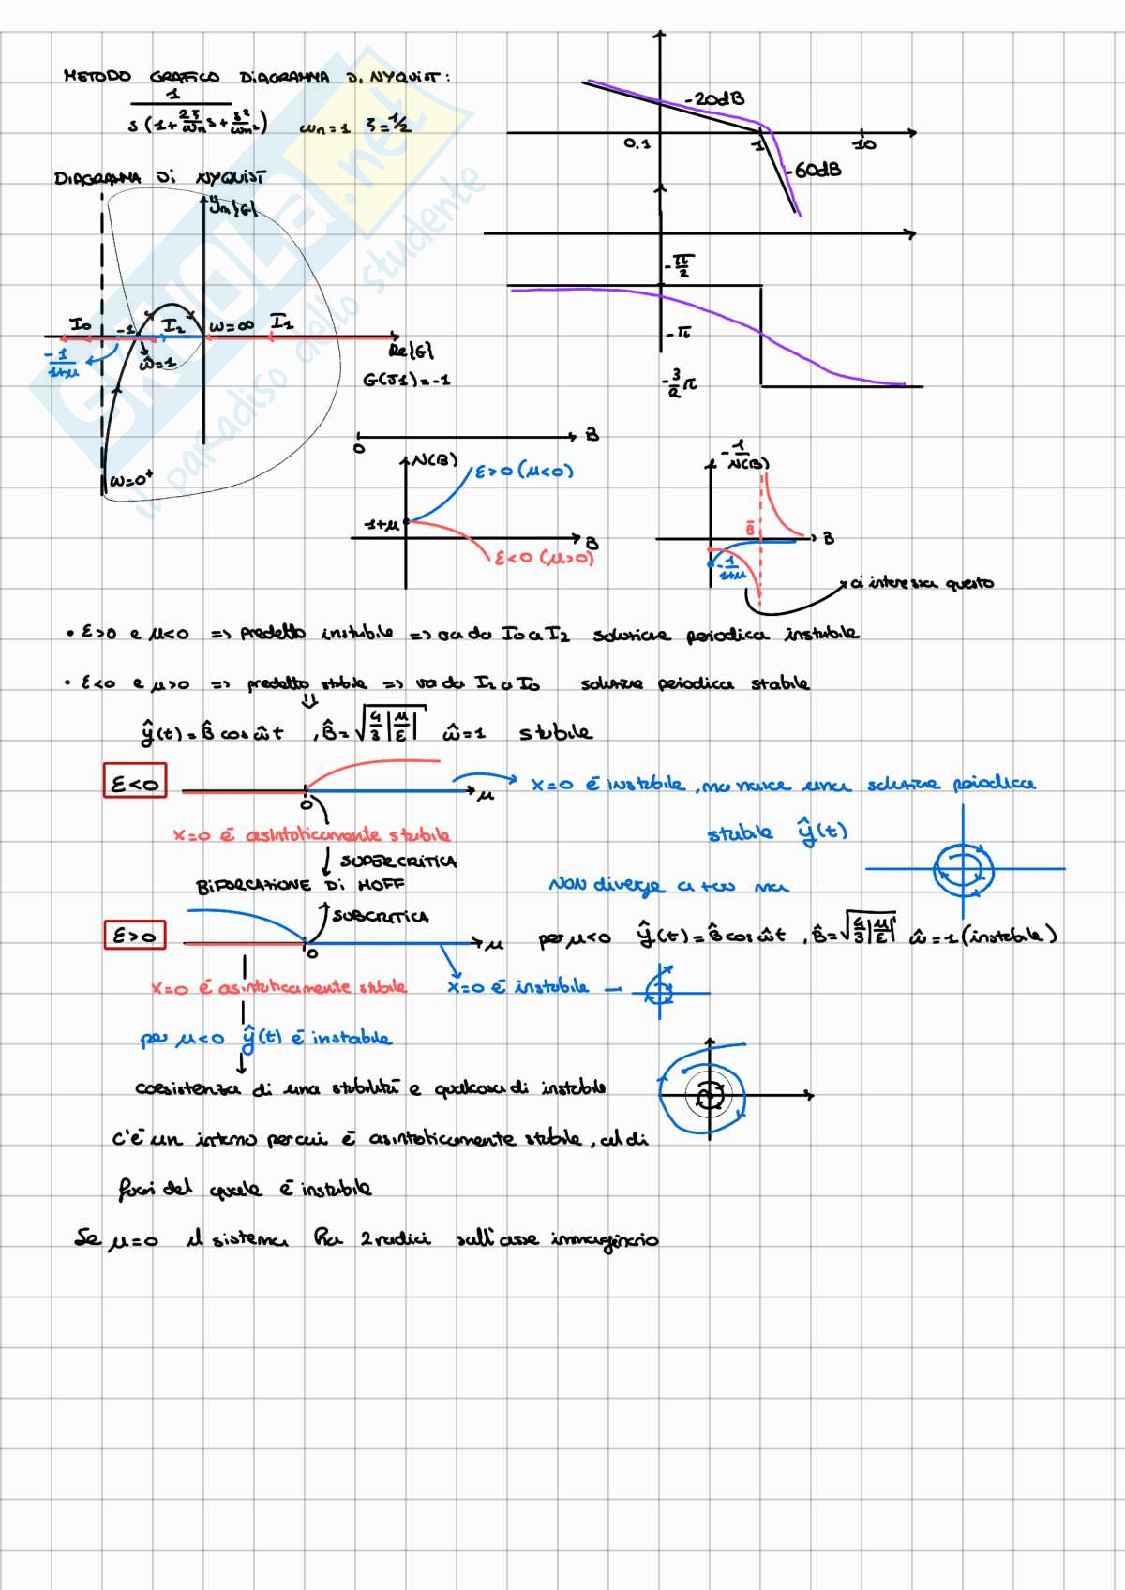 METODO GRAFICO DIAGRAMMA DI NYQUIST:
1
s(1+2ξ/ωn s+s²/ωn²) ωn=1 ξ=1/2
-20dB
0.1 1 10
-60dB
DIAGRAMMA Di NYQUIST
Jm{G}
-π/2
-π
-3/2π
I0 -1 I2 ω=∞ I1
-1/1+μ ω̂=1 Re{G}
G(J1)=-1
ω=0⁺
0 B
N(B) ε>0(μ<0)
1+μ B
ε<0(μ>0)
-1/N(B)
B̄ B
-1/1+μ
ci interessa questo
• ε>0 e μ<0 => predetto instabile => va da I0 a I2 soluzione periodica instabile
• ε<0 e μ>0 => predetto stabile => va da I2 a I0 soluzione periodica stabile
ŷ(t)=B̂ cos ω̂t , B̂=√4/3|μ/ε| ω̂=1 stabile
ε<0 0 μ x=0 è instabile, ma nasce una soluzione periodica
x=0 è asintoticamente stabile stabile ŷ(t)
SUPERCRITICA
BIFORCAZIONE DI HOFF NON diverge a +∞ ma
SUBCRITICA
ε>0 0 μ per μ<0 ŷ(t)=B̂ cos ω̂t , B̂=√4/3|μ/ε| ω̂=1 (instabile)
x=0 è asintoticamente stabile x=0 è instabile -
per μ<0 ŷ(t) è instabile
coesistenza di una stabilità e qualcosa di instabile
C'è un intorno per cui è asintoticamente stabile, al di
fuori del quale è instabile
Se μ=0 il sistema ha 2 radici sull'asse immaginario
SKUOLA.net
il paradiso dello studente